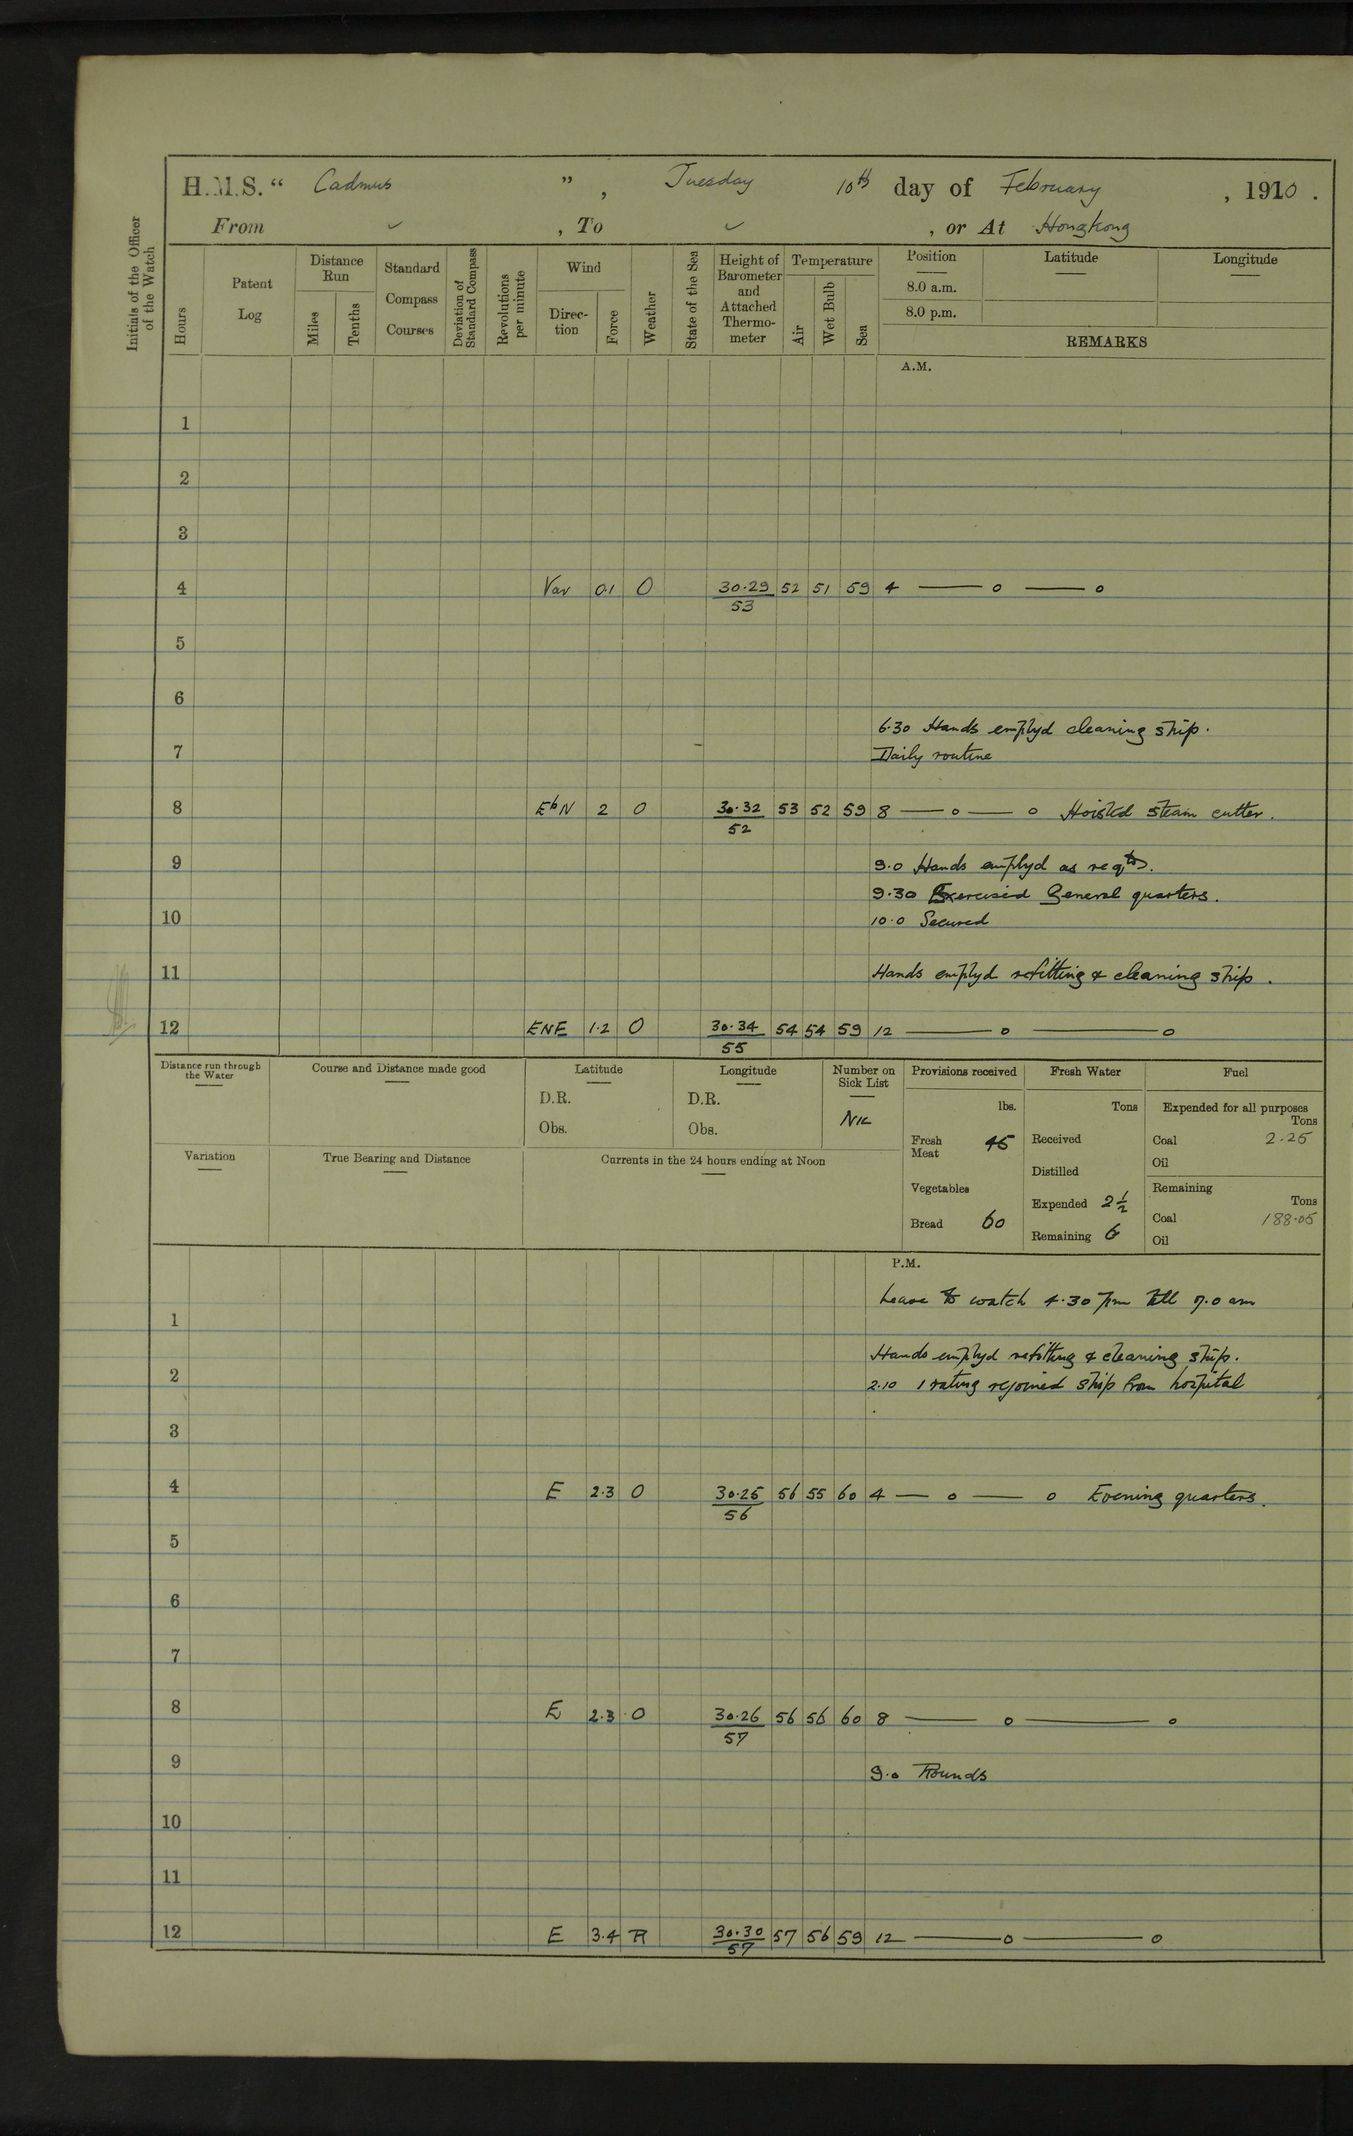 H.M.S. “ Cadmus ” , Tuesday 10th day of February , 1910 .
From ✓ , To ✓ , or At Hongkong
Initials of the Officer of the Watch
Hours
Patent Log
Distance Run
Miles
Tenths
Standard Compass Courses
Deviation of Standard Compass
Revolutions per minute
Wind
Direction
Force
Weather
State of the Sea
Height of Barometer and Attached Thermometer
Temperature
Air
Wet Bulb
Sea
Position
Latitude
Longitude
8.0 a.m.
8.0 p.m.
REMARKS
A.M.
1
2
3
4 Var 0.1 O 30.29/53 52 51 59 4 — o — o
5
6
6.30 Hands emplyd cleaning ship.
7 Daily routine
8 EbN 2 O 30.32/52 53 52 59 8 — o — o Hoisted steam cutter.
9 9.0 Hands emplyd as reqd.
9.30 Exercised General quarters.
10 10.0 Secured
11 Hands emplyd refitting & cleaning ship.
12 ENE 1.2 O 30.34/55 54 54 59 12 — o — o
Distance run through the Water
Course and Distance made good
Latitude
D.R.
Obs.
Longitude
D.R.
Obs.
Number on Sick List
NIL
Provisions received
lbs.
Fresh Meat 45
Vegetables
Bread 60
Fresh Water
Tons
Received
Distilled
Expended 2½
Remaining 6
Fuel
Expended for all purposes
Tons
Coal 2.25
Oil
Remaining
Tons
Coal 188.05
Oil
Variation
True Bearing and Distance
Currents in the 24 hours ending at Noon
P.M.
Leave to watch 4.30 pm till 7.0 am
1
Hands emplyd refitting & cleaning ship.
2 2.10 1 rating rejoined ship from hospital
3
4 E 2.3 O 30.25/56 56 55 60 4 — o — o Evening quarters.
5
6
7
8 E 2.3 O 30.26/57 56 56 60 8 — o — o
9 9.0 Rounds
10
11
12 E 3.4 R 30.30/57 57 56 59 12 — o — o